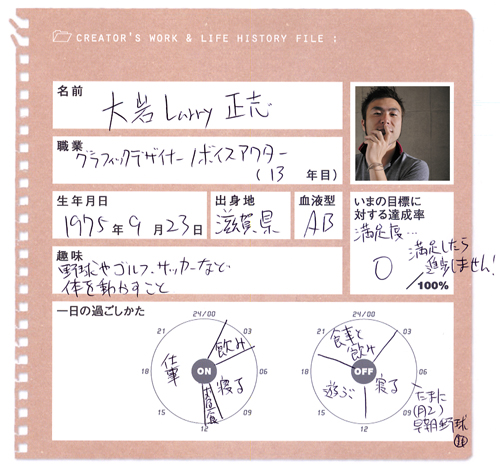 CREATOR'S WORK & LIFE HISTORY FILE :
名前
大岩 Larry 正志
職業
グラフィックデザイナー / ボイスアクター
( 13 年目)
生年月日
1975年 9月 23日
出身地
滋賀県
血液型
AB
いまの目標に
対する達成率
満足度…
0
満足したら
進歩しません!
/100%
趣味
野球やゴルフ、サッカーなど、
体を動かすこと
一日の過ごしかた
24/00
21
03
18
06
15
09
12
ON
仕事
飲み
寝る
24/00
21
03
18
06
15
09
12
OFF
食事と
飲み
遊ぶ
寝る
たまに
(月2)
早朝野球